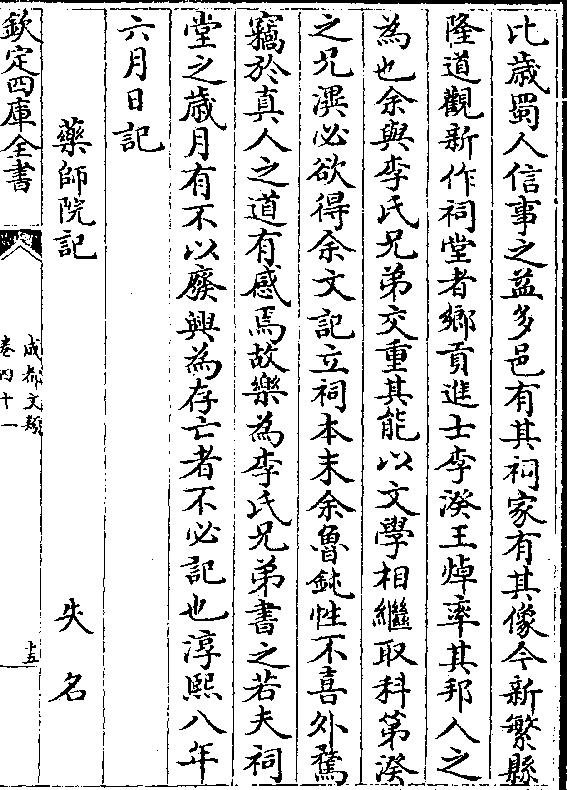 比歳蜀人信事之益多邑有其祠家有其像今新繁縣
隆道觀新作祠堂者鄉貢進士李湀王焯率其邦人之
為也余與李氏兄弟交重其能以文學相繼取科第湀
之兄潩必欲得余文記立祠本末余魯鈍性不喜外騖
竊於真人之道有感焉故樂為李氏兄弟書之若夫祠
堂之歳月有不以廢興為存亡者不必記也淳熙八年
六月日記
藥師院記 失名
欽定四庫全書
成都文類
卷四十一
十五